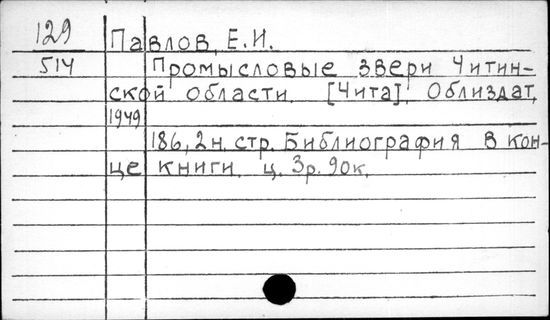 129
514
Павлов, Е.И.
Промысловые звери Читин-
ской области. [Чита], Облиздат,
1949
186, 2 н. стр. Библиография в кон-
це книги. ц. 3р. 90к.